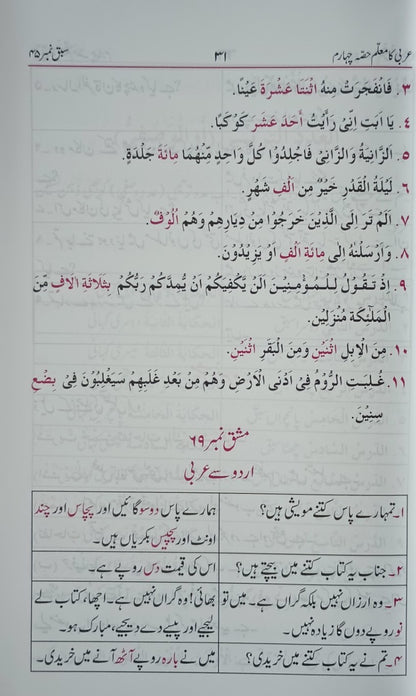 عربی کا معلم حصہ چہارم ۳۱ سبق نمبر ۴۵
۳۔ فَانْفَجَرَتْ مِنْهُ اثْنَتَا عَشْرَةَ عَيْنًا.
۴۔ يَا اَبَتِ اِنِّىْ رَاَيْتُ اَحَدَ عَشَرَ كَوْكَبًا.
۵۔ اَلزَّانِيَةُ وَالزَّانِىْ فَاجْلِدُوْا كُلَّ وَاحِدٍ مِّنْهُمَا مِائَةَ جَلْدَةٍ.
۶۔ لَيْلَةُ الْقَدْرِ خَيْرٌ مِّنْ اَلْفِ شَهْرٍ.
۷۔ اَلَمْ تَرَ اِلَى الَّذِيْنَ خَرَجُوْا مِنْ دِيَارِهِمْ وَهُمْ اُلُوْفٌ.
۸۔ وَاَرْسَلْنٰهُ اِلٰى مِائَةِ اَلْفٍ اَوْ يَزِيْدُوْنَ.
۹۔ اِذْ تَقُوْلُ لِلْمُؤْمِنِيْنَ اَلَنْ يَّكْفِيَكُمْ اَنْ يُّمِدَّكُمْ رَبُّكُمْ بِثَلَاثَةِ اٰلَافٍ مِّنَ
الْمَلٰٓئِكَةِ مُنْزَلِيْنَ.
۱۰۔ مِنَ الْاِبِلِ اثْنَيْنِ وَمِنَ الْبَقَرِ اثْنَيْنِ.
۱۱۔ غُلِبَتِ الرُّوْمُ فِىْ اَدْنَى الْاَرْضِ وَهُمْ مِنْ بَعْدِ غَلَبِهِمْ سَيَغْلِبُوْنَ فِىْ بِضْعِ
سِنِيْنَ.
مشق نمبر ۶۹
اردو سے عربی
۱۔ تمہارے پاس کتنے مویشی ہیں؟ ہمارے پاس دوسو گائیں اور پچاس اور چند
اونٹ اور پچیس بکریاں ہیں۔
۲۔ جناب یہ کتاب کتنے میں بیچتے ہیں؟ اس کی قیمت دس روپے ہے۔
۳۔ وہ ارزاں نہیں بلکہ گراں ہے۔ میں تو بھائی! وہ گراں نہیں ہے۔ اچھا، کتاب لے
نو روپے دوں گا زیادہ نہیں۔ لیجیے اور پیسے دے دیجیے، مبارک ہو۔
۴۔ تم نے یہ کتاب کتنے میں خریدی؟ میں نے بارہ روپے آٹھ آنے میں خریدی۔